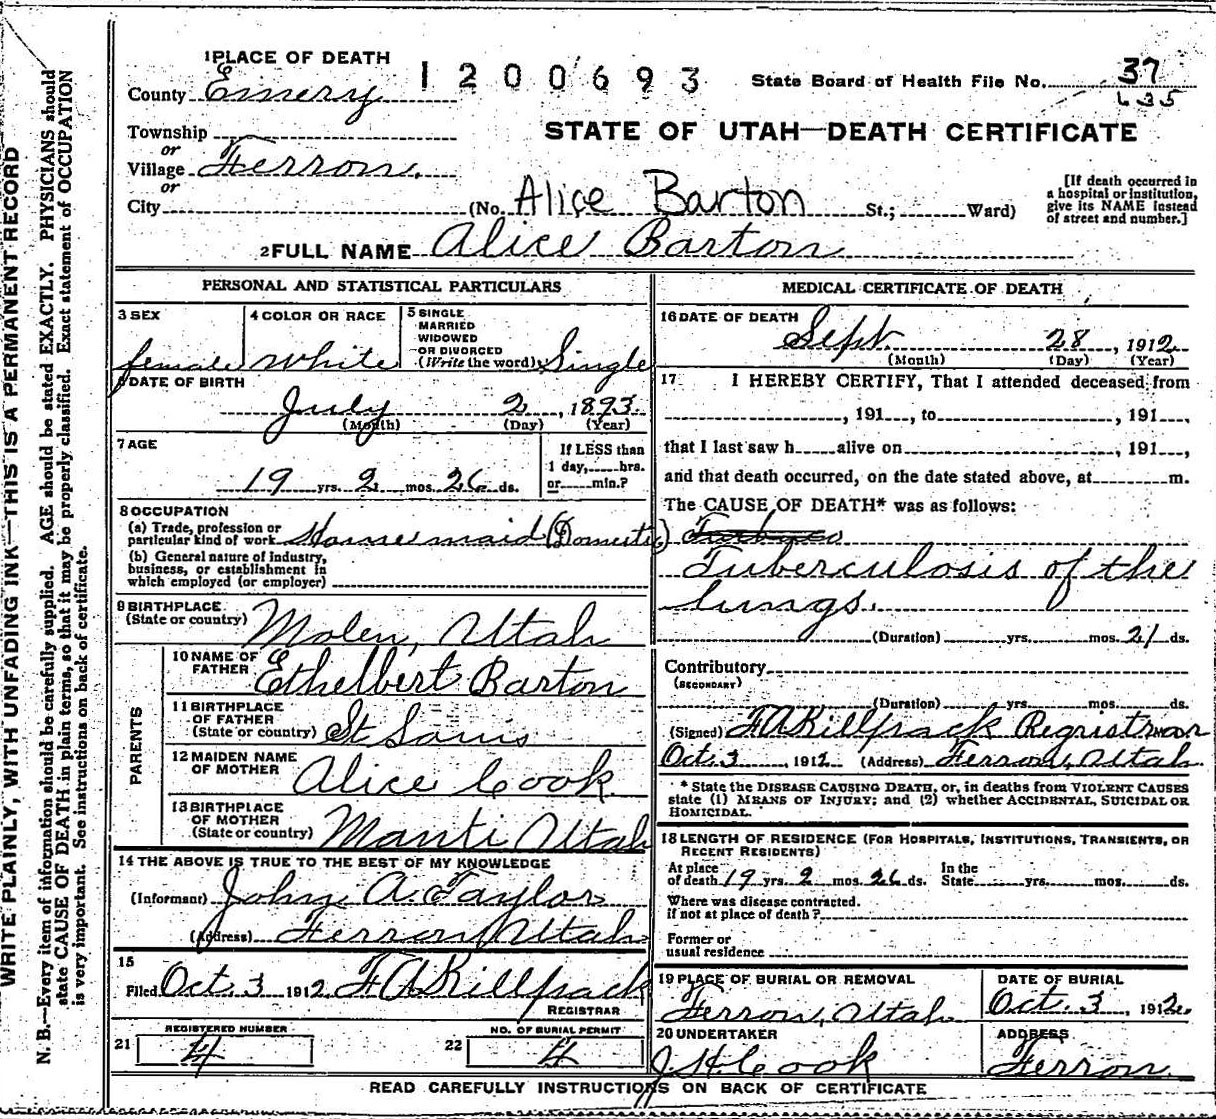 WRITE PLAINLY, WITH UNFADING INK—THIS IS A PERMANENT RECORD
N. B.—Every item of information should be carefully supplied. AGE should be stated EXACTLY. PHYSICIANS should
state CAUSE OF DEATH in plain terms, so that it may be properly classified. Exact statement of OCCUPATION
is very important. See instructions on back of certificate.
1 PLACE OF DEATH
1200693
State Board of Health File No. 37
635
County Emery
Township
or
Village Ferron.
or
City
STATE OF UTAH—DEATH CERTIFICATE
(No. Alice Barton St.; Ward)
[If death occurred in
a hospital or institution,
give its NAME instead
of street and number.]
2 FULL NAME Alice Barton
PERSONAL AND STATISTICAL PARTICULARS
3 SEX
female
4 COLOR OR RACE
White
5 SINGLE
MARRIED
WIDOWED
OR DIVORCED
(Write the word) Single
6 DATE OF BIRTH
July 2, 1893.
(Month) (Day) (Year)
7 AGE
19 yrs. 2 mos. 26 ds.
If LESS than
1 day, hrs.
or min.?
8 OCCUPATION
(a) Trade, profession or
particular kind of work House maid (Domestic)
(b) General nature of industry,
business, or establishment in
which employed (or employer)
9 BIRTHPLACE
(State or country) Molen, Utah
PARENTS
10 NAME OF
FATHER Ethelbert Barton
11 BIRTHPLACE
OF FATHER
(State or country) St Louis
12 MAIDEN NAME
OF MOTHER Alice Cook
13 BIRTHPLACE
OF MOTHER
(State or country) Manti, Utah
14 THE ABOVE IS TRUE TO THE BEST OF MY KNOWLEDGE
(Informant) John A. Taylor
(Address) Ferron, Utah
15
Filed Oct. 3 1912. F A Killpack
REGISTRAR
REGISTERED NUMBER
21 4
NO. OF BURIAL PERMIT
22 4
MEDICAL CERTIFICATE OF DEATH
16 DATE OF DEATH
Sept. 28, 1912
(Month) (Day) (Year)
17 I HEREBY CERTIFY, That I attended deceased from
, 191 , to , 191 ,
that I last saw h alive on , 191 ,
and that death occurred, on the date stated above, at m.
The CAUSE OF DEATH* was as follows:
Tuberculosis of the
lungs.
(Duration) yrs. mos. 21 ds.
Contributory
(SECONDARY)
(Duration) yrs. mos. ds.
(Signed) F A Killpack Registrar
Oct. 3, 1912 (Address) Ferron, Utah
* State the DISEASE CAUSING DEATH, or, in deaths from VIOLENT CAUSES
state (1) MEANS OF INJURY; and (2) whether ACCIDENTAL, SUICIDAL OR
HOMICIDAL.
18 LENGTH OF RESIDENCE (FOR HOSPITALS, INSTITUTIONS, TRANSIENTS, OR
RECENT RESIDENTS)
At place
of death 19 yrs. 2 mos. 26 ds.
In the
State yrs. mos. ds.
Where was disease contracted.
if not at place of death?
Former or
usual residence
19 PLACE OF BURIAL OR REMOVAL
Ferron, Utah
DATE OF BURIAL
Oct. 3, 1912.
20 UNDERTAKER
J H Cook
ADDRESS
Ferron
READ CAREFULLY INSTRUCTIONS ON BACK OF CERTIFICATE